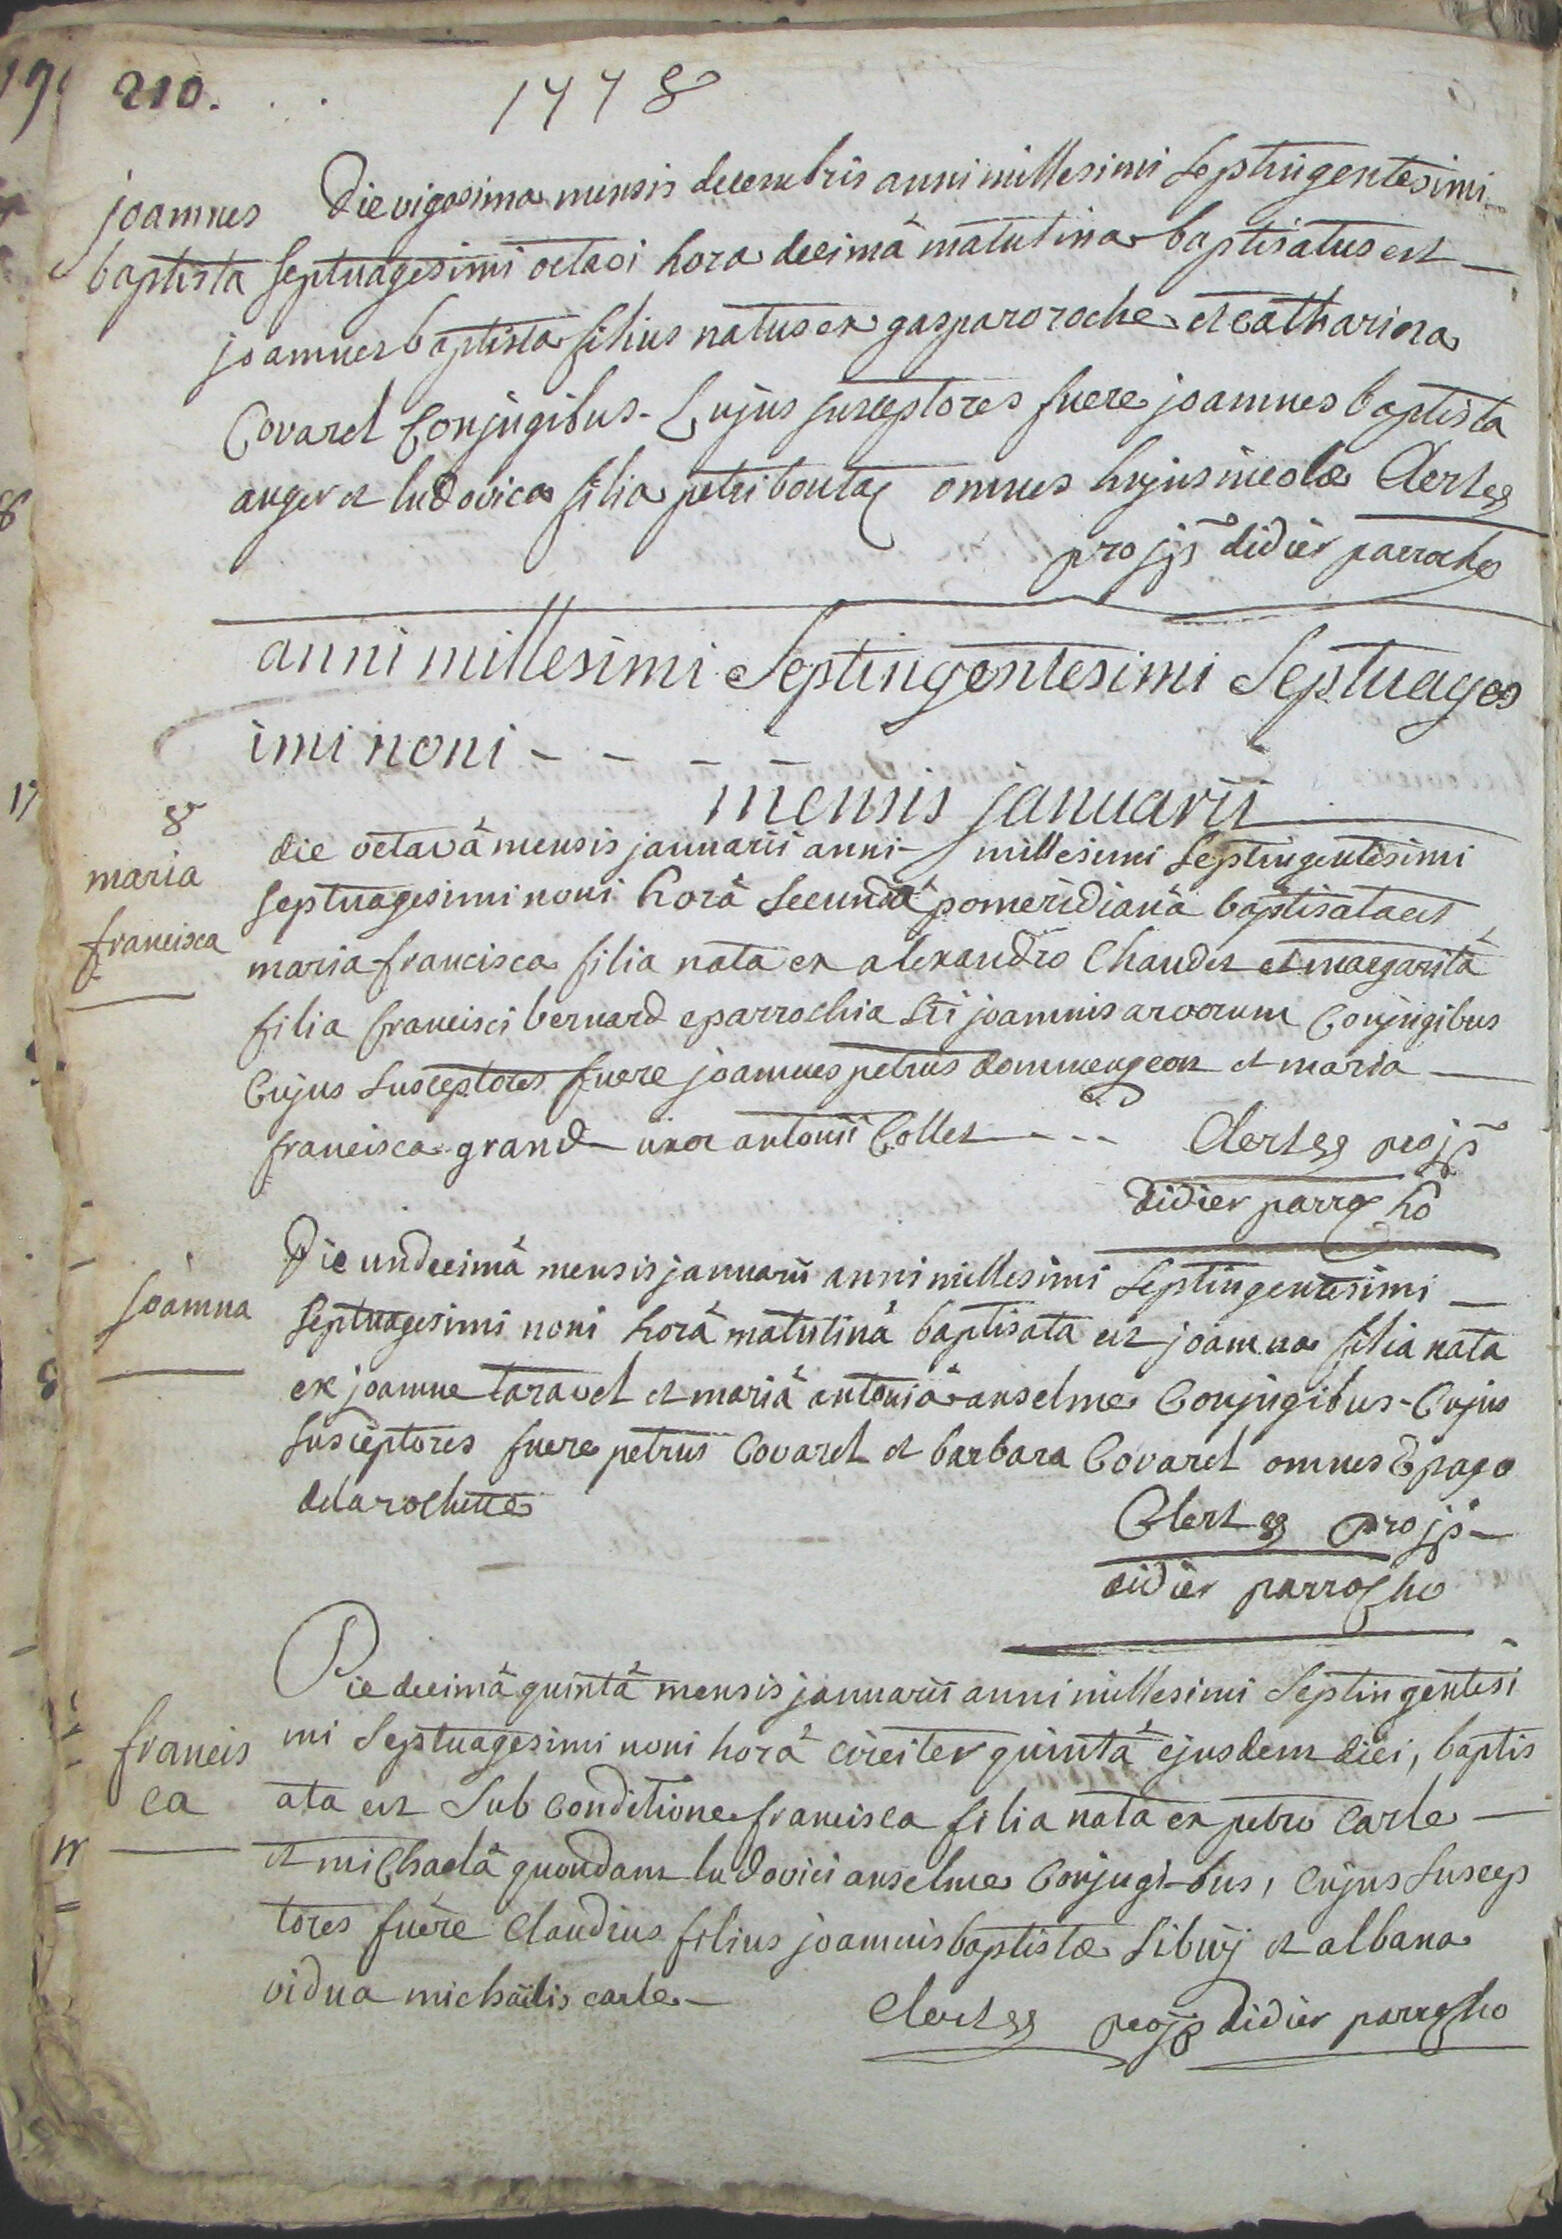 210.
1778
joannes
baptista
Die vigesima mensis decembris anni millesimi septingentesimi
septuagesimi octavi hora decimâ matutina baptisatus est
joannes baptista filius natus ex gasparo roche et catharina
Covarel Conjugibus. Cujus susceptores fuere joannes baptista
auger et ludovica filia petri boutaz omnes hujus incolæ Clert
pro jp didier parrocho
anni millesimi Septingentesimi Septuages
imi noni - - - -
mensis januarii
8
maria
francisca
die octavâ mensis januarii anni millesimi septingentesimi
septuagesimi noni horâ secundâ pomeridianâ baptisata est
maria francisca filia nata ex alexandro Chaudet et margaritâ
filia francisci bernard e parrochia Sti joannis arvorum Conjugibus
Cujus susceptores fuere joannes petrus dommengeon et maria
francisca grand uxor antonii Collet - - - Clert pro jp
didier parrocho
joanna
Die undecimâ mensis januarii anni millesimi septingentesimi
septuagesimi noni horâ matutinâ baptisata est joanna filia nata
ex joanne taravel et mariâ antoniâ anselme Conjugibus - Cujus
susceptores fuere petrus Covarel et barbara Covarel omnes e pago
delarochette
Clert pro jp
didier parrocho
francis
ca
Die decimâ quintâ mensis januarii anni millesimi septingentesi
mi septuagesimi noni horâ circiter quintâ ejusdem diei, baptis
ata est sub conditione francisca filia nata ex petro carle
et michaelâ quondam ludovici anselme Conjugibus, cujus suscep
tores fuêre Claudius filius joannis baptistæ Sibuÿ et albana
vidua michäelis carle -
Clert pro jp didier parrocho